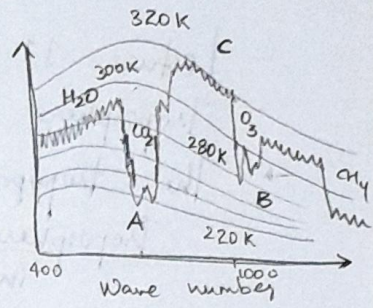 320K
C
300K
H2O
CO2
O3
280K
CH4
B
A
220K
400
1000
Wave number